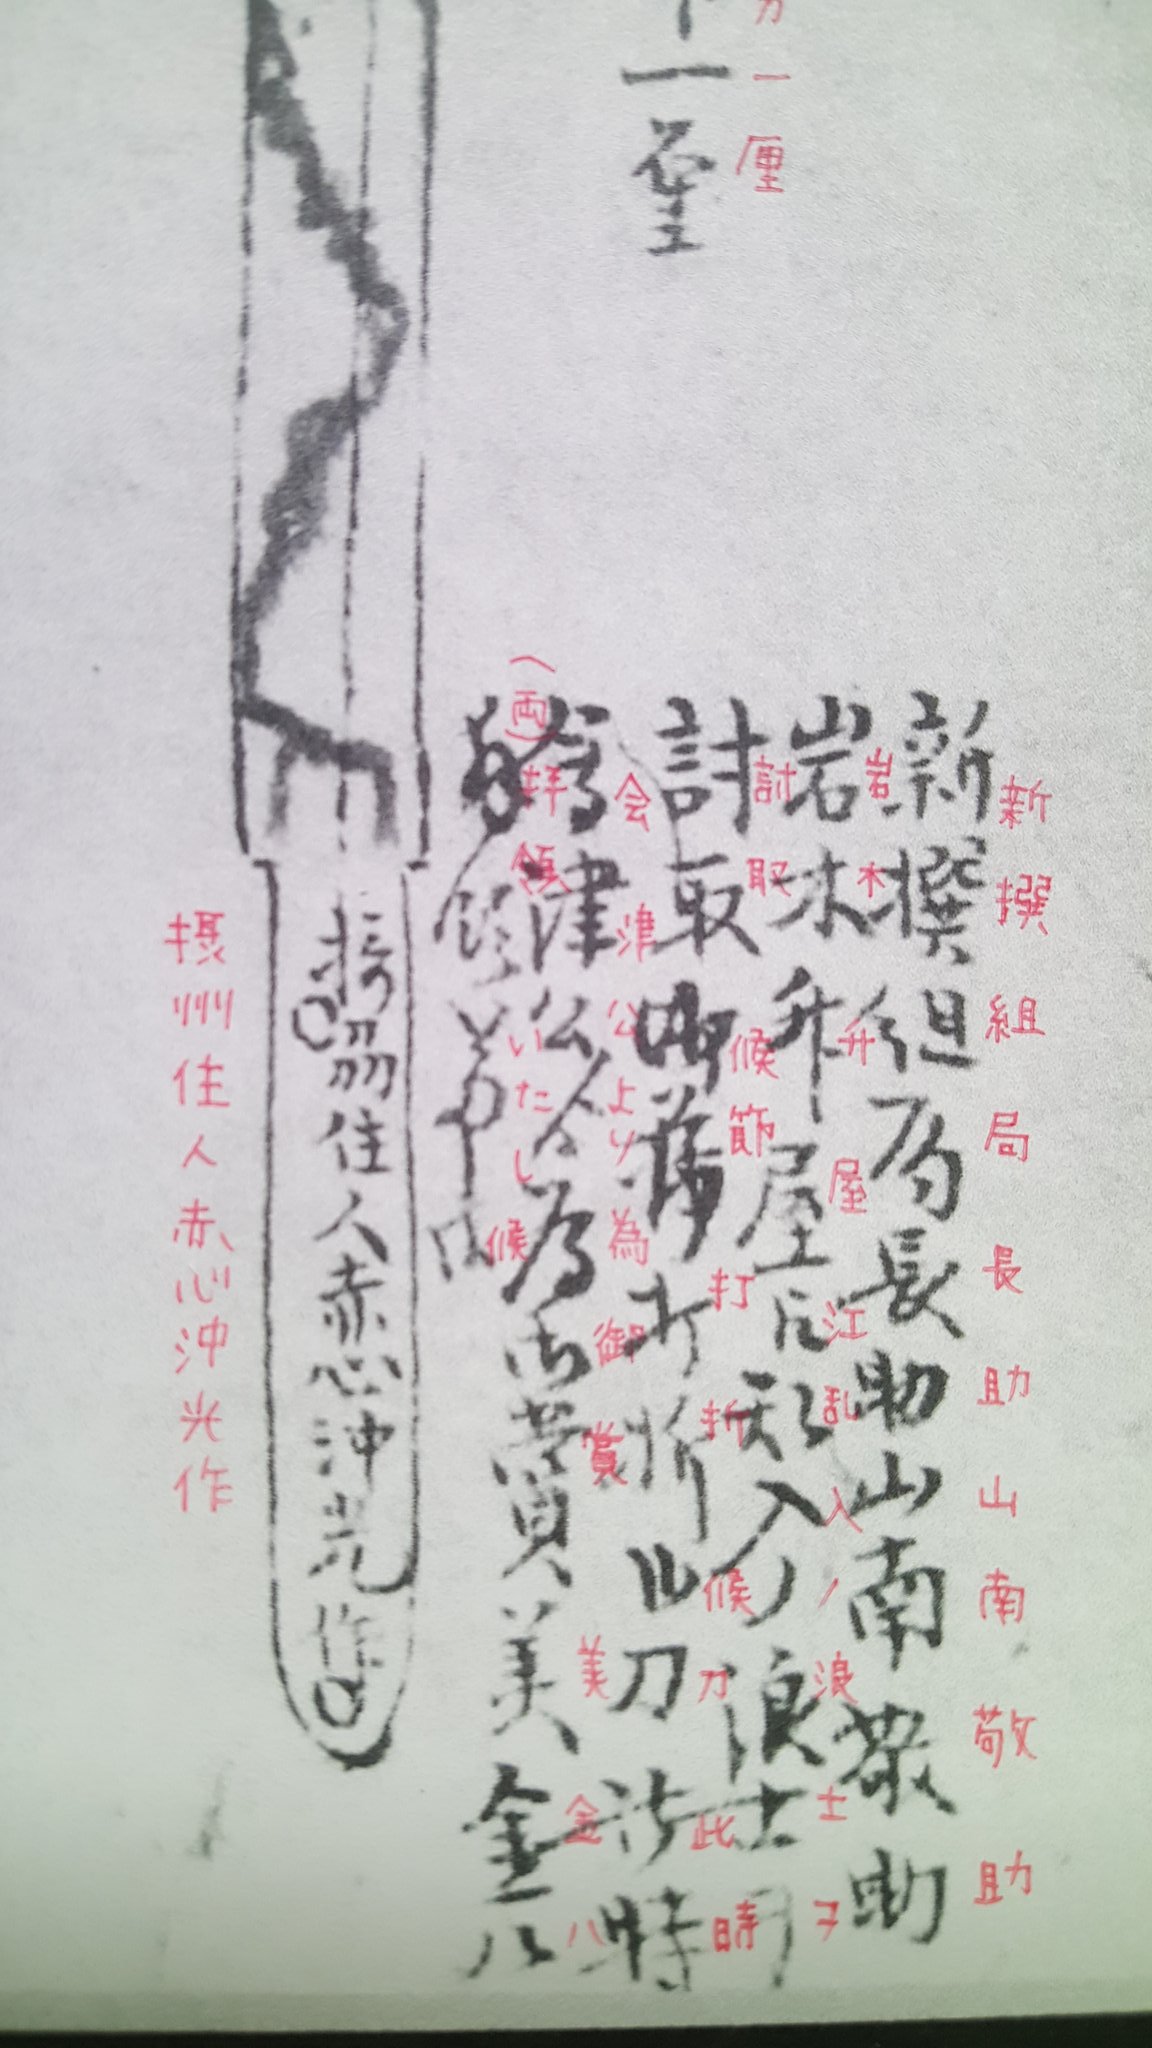 一厘
一厘
新撰組局長助山南敬助
新撰組局長助山南敬助
岩木升屋江乱入ノ浪士ヲ
岩木升屋江乱入ノ浪士
討取候節打折候刀此時
討取候節打折候刀此時
会津公より為御賞美金八
会津公より為御賞美金八
(両)拝領いたし候
摂州住人赤心沖光作
摂州住人赤心沖光作